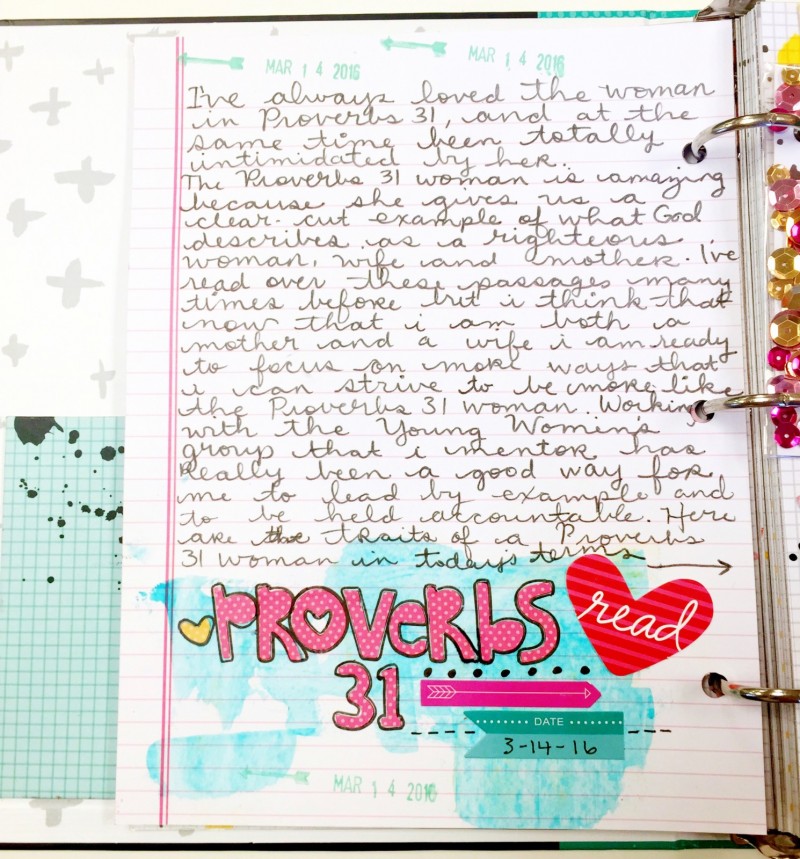 MAR 1 4 2016
MAR 1 4 2016
I've always loved the woman
in Proverbs 31, and at the
same time been totally
intimidated by her.
The Proverbs 31 woman is amazing
because she gives us a
clear-cut example of what God
describes as a righteous
woman, wife and mother. I've
read over these passages many
times before but i think that
now that i am both a
mother and a wife i am ready
to focus on more ways that
i can strive to be more like
the Proverbs 31 woman. Working
with the Young Women's
group that i mentor has
Really been a good way for
me to lead by example and
to be held accountable. Here
are the traits of a Proverbs
31 woman in today's terms
PROVERBS
read
31
DATE
3-14-16
MAR 1 4 2016